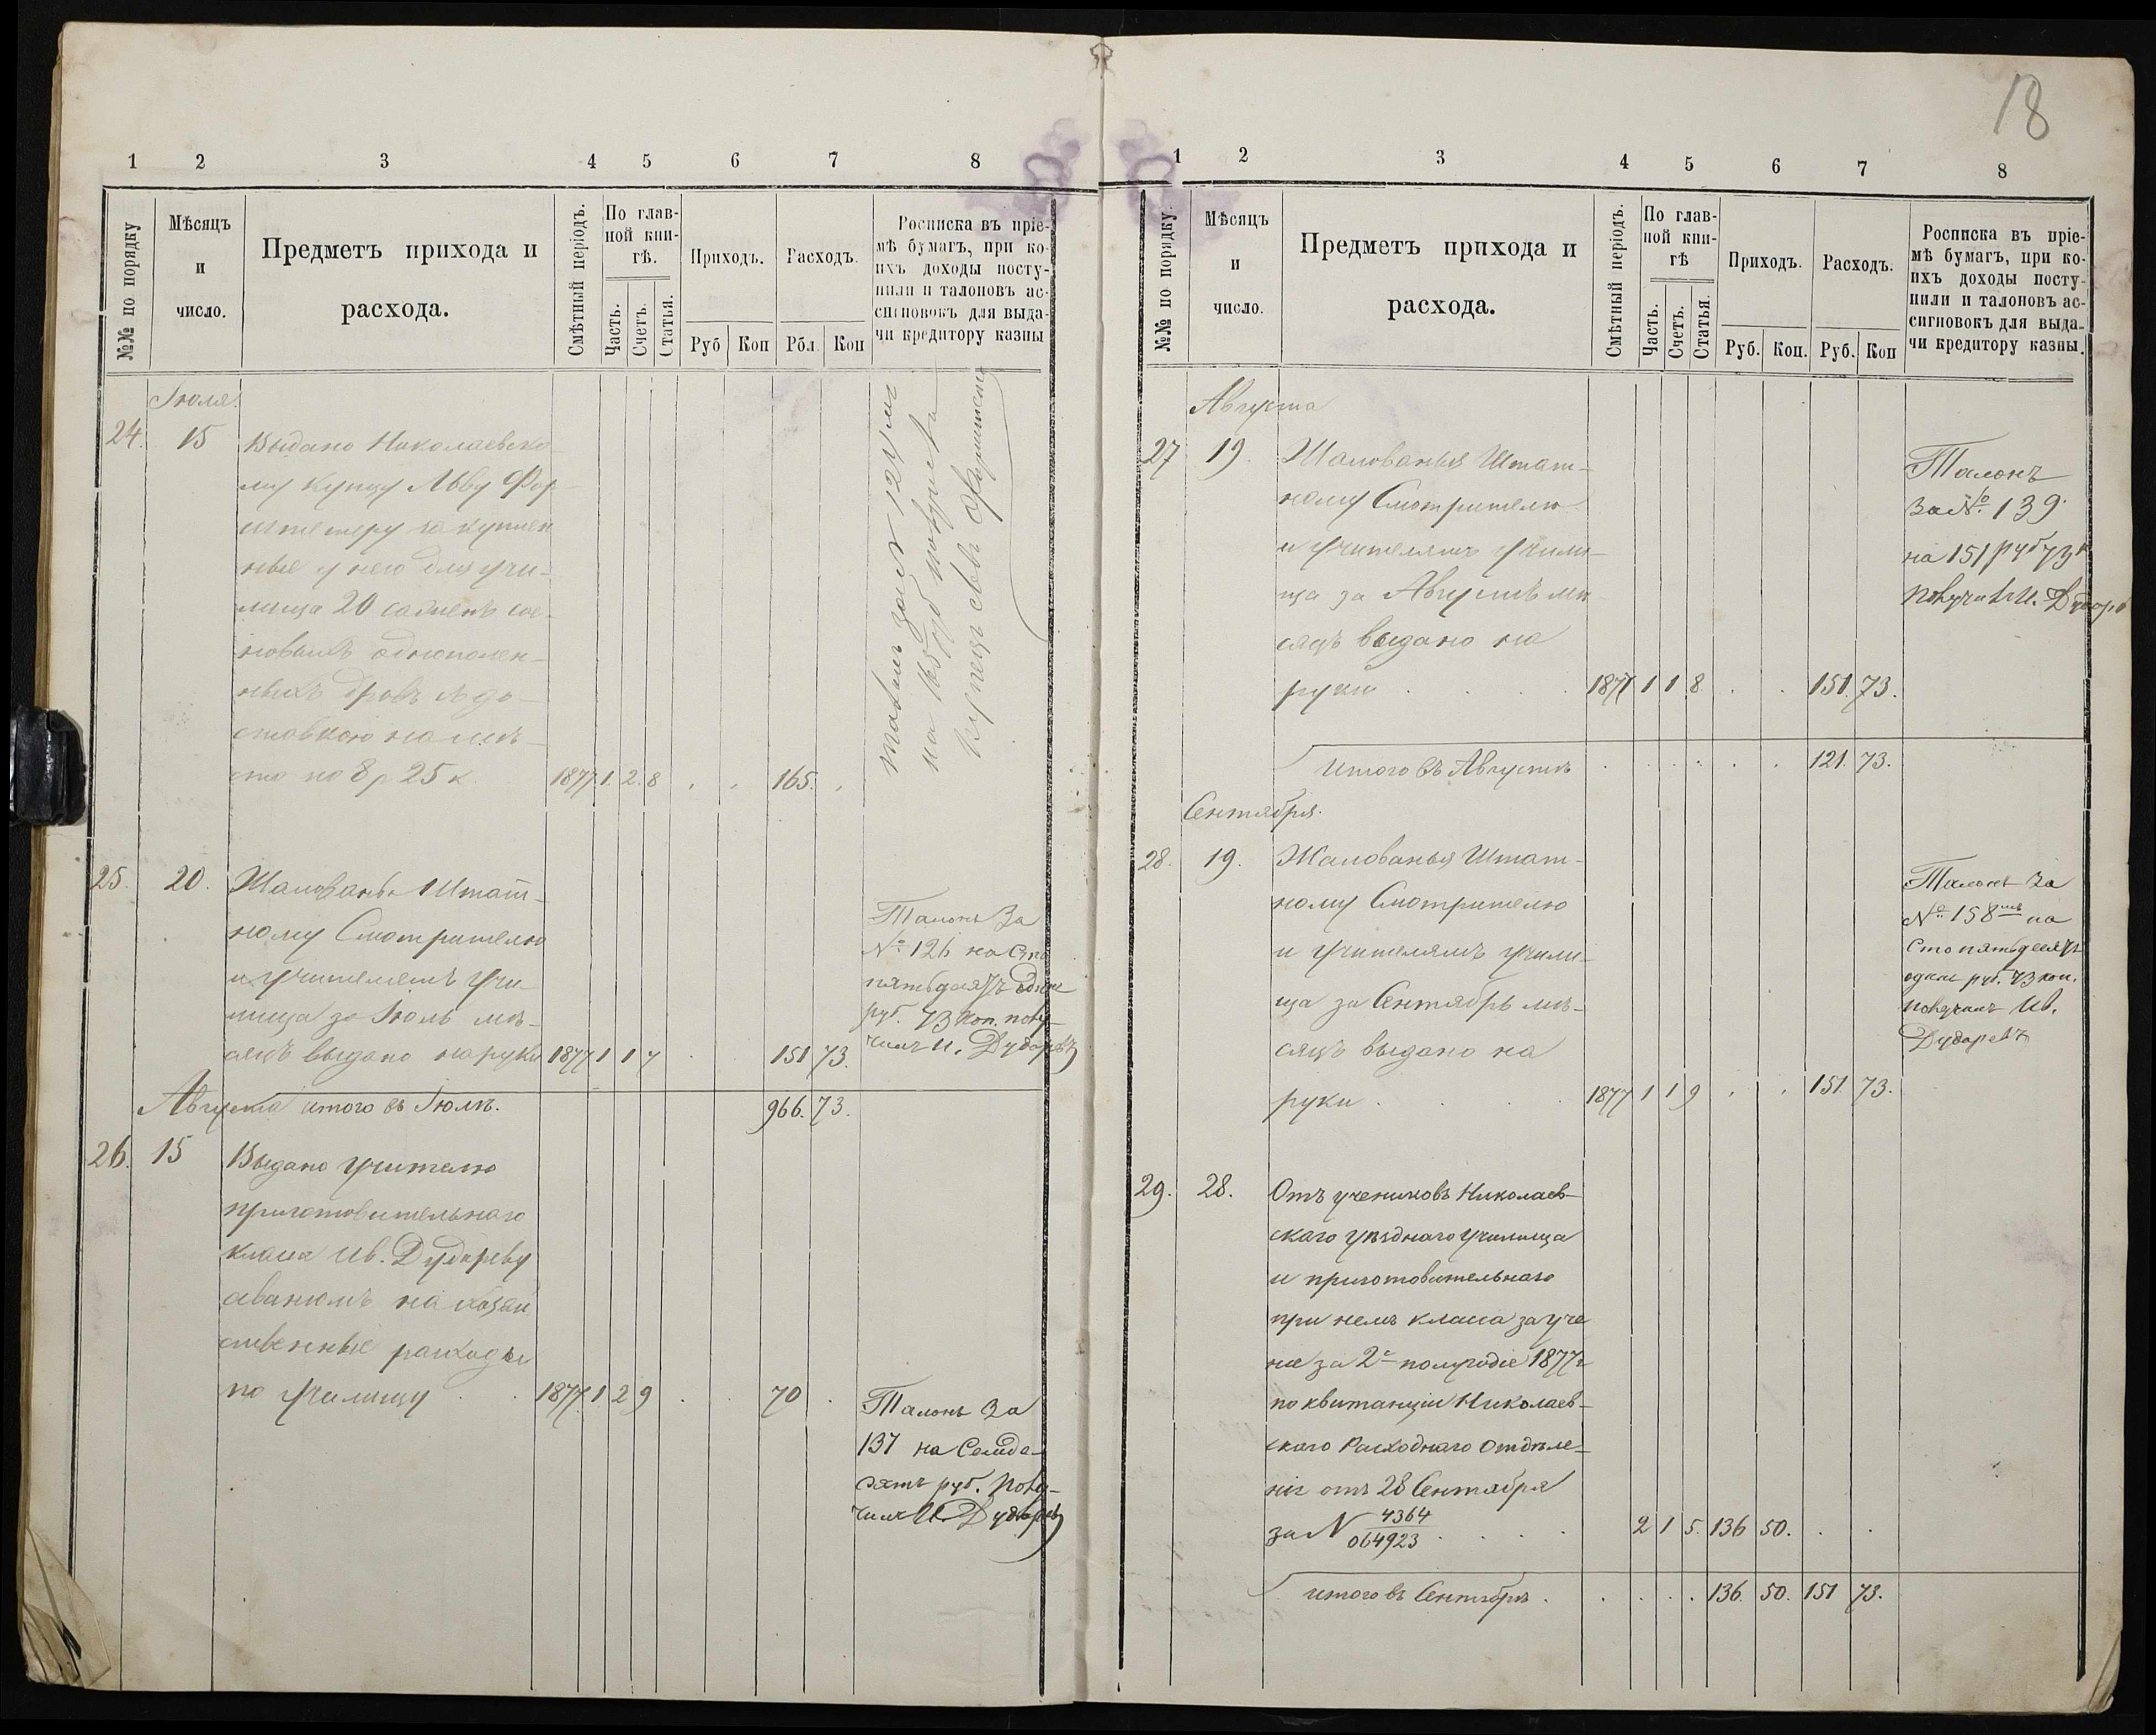 18
1 2 3 4 5 6 7 8
№№ по порядку
Мѣсяцъ
и
число.
Предметъ прихода и
расхода.
Смѣтный періодъ.
По глав-
ной кни-
гѣ.
Часть.
Счетъ.
Статья.
Приходъ.
Руб Коп
Расходъ.
Рбл. Коп
Росписка въ пріе-
мѣ бумагъ, при ко-
ихъ доходы посту-
пили и талоновъ ас-
сигновокъ для выда-
чи кредитору казны
Іюля.
24. 15 Выдано Николаевско-
му купцу Льву Фор-
штетеру за куплен
ные у него для учи-
лища 20 саженъ сос-
новыхъ однополен-
ныхъ дровъ съ до-
ставкою на мѣ-
сто по 8 р 25 к. 1877. 1. 2. 8 165.
Талонъ за № 121
на 165 руб получилъ
купецъ Левъ
25. 20. Жалованья Штат-
ному Смотрителю
и учителямъ учи-
лища за Іюль мѣ-
сяцъ выдано на руки 1877 1 1 7 151 73.
Талонъ За
№ 126 на Сто
пятьдесятъ одинъ
руб. 73 коп. полу-
чилъ И. Дударевъ
Августа итого въ Іюлѣ. 966. 73.
26. 15 Выдано учителю
приготовительнаго
класса Ив. Дудареву
авансомъ на хозяй
ственные расходы
по училищу 1877. 1 2 9 70
Талонъ За
137 на Семьде-
сятъ руб. Полу-
чилъ И. Дударевъ
1 2 3 4 5 6 7 8
№№ по порядку.
Мѣсяцъ
и
число.
Предметъ прихода и
расхода.
Смѣтный періодъ.
По глав-
ной кни-
гѣ
Часть.
Счетъ.
Статья.
Приходъ.
Руб. Коп.
Расходъ.
Руб. Коп
Росписка въ пріе-
мѣ бумагъ, при ко-
ихъ доходы посту-
пили и талоновъ ас-
сигновокъ для выда-
чи кредитору казны.
Августа
27 19. Жалованья Штат-
ному Смотрителю
и учителямъ учили-
ща за Августъ мѣ-
сяцъ выдано на
руки 1877 1 1 8 151. 73.
Талонъ
За № 139
на 151 руб 73 к
получилъ И. Дударевъ
Итого въ Августѣ 121. 73.
Сентября.
28. 19. Жалованья Штат-
ному Смотрителю
и учителямъ учили-
ща за Сентябрь мѣ-
сяцъ выдано на
руки 1877 1 1 9 151. 73.
Талонъ За
№ 158 на
Сто пятьдесятъ
одинъ руб. 73 коп.
получилъ Ив.
Дударевъ
29. 28. Отъ учениковъ Николаев-
скаго уѣзднаго училища
и приготовительнаго
при немъ класса за уче
ніе за 2е полугодіе 1877 г
по квитанціи Николаев-
скаго Расходнаго Отдѣле-
нія отъ 28 Сентября
за N 4364/064923 2 1 5. 136 50.
итого въ Сентябрѣ. 136. 50. 151 73.